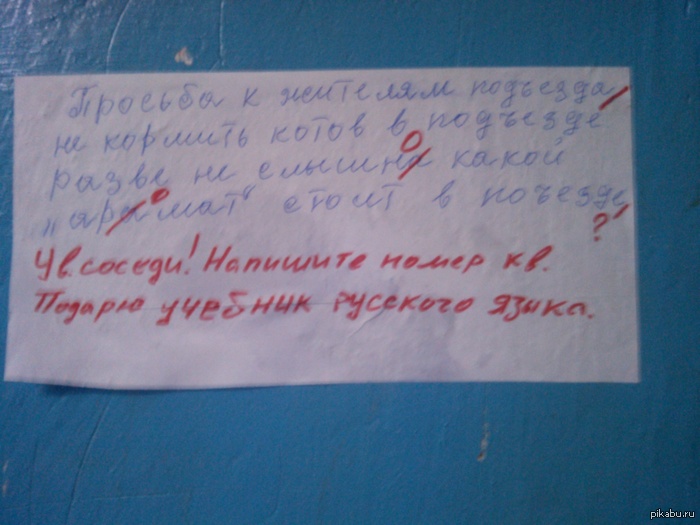 Просьба к жителям подъезда
не кормить котов в подъезде
разве не слышна какой
"арамат" стоит в поъезде
о
о
?
Ув. соседи! Напишите номер кв.
Подарю учебник русского языка.
pikabu.ru